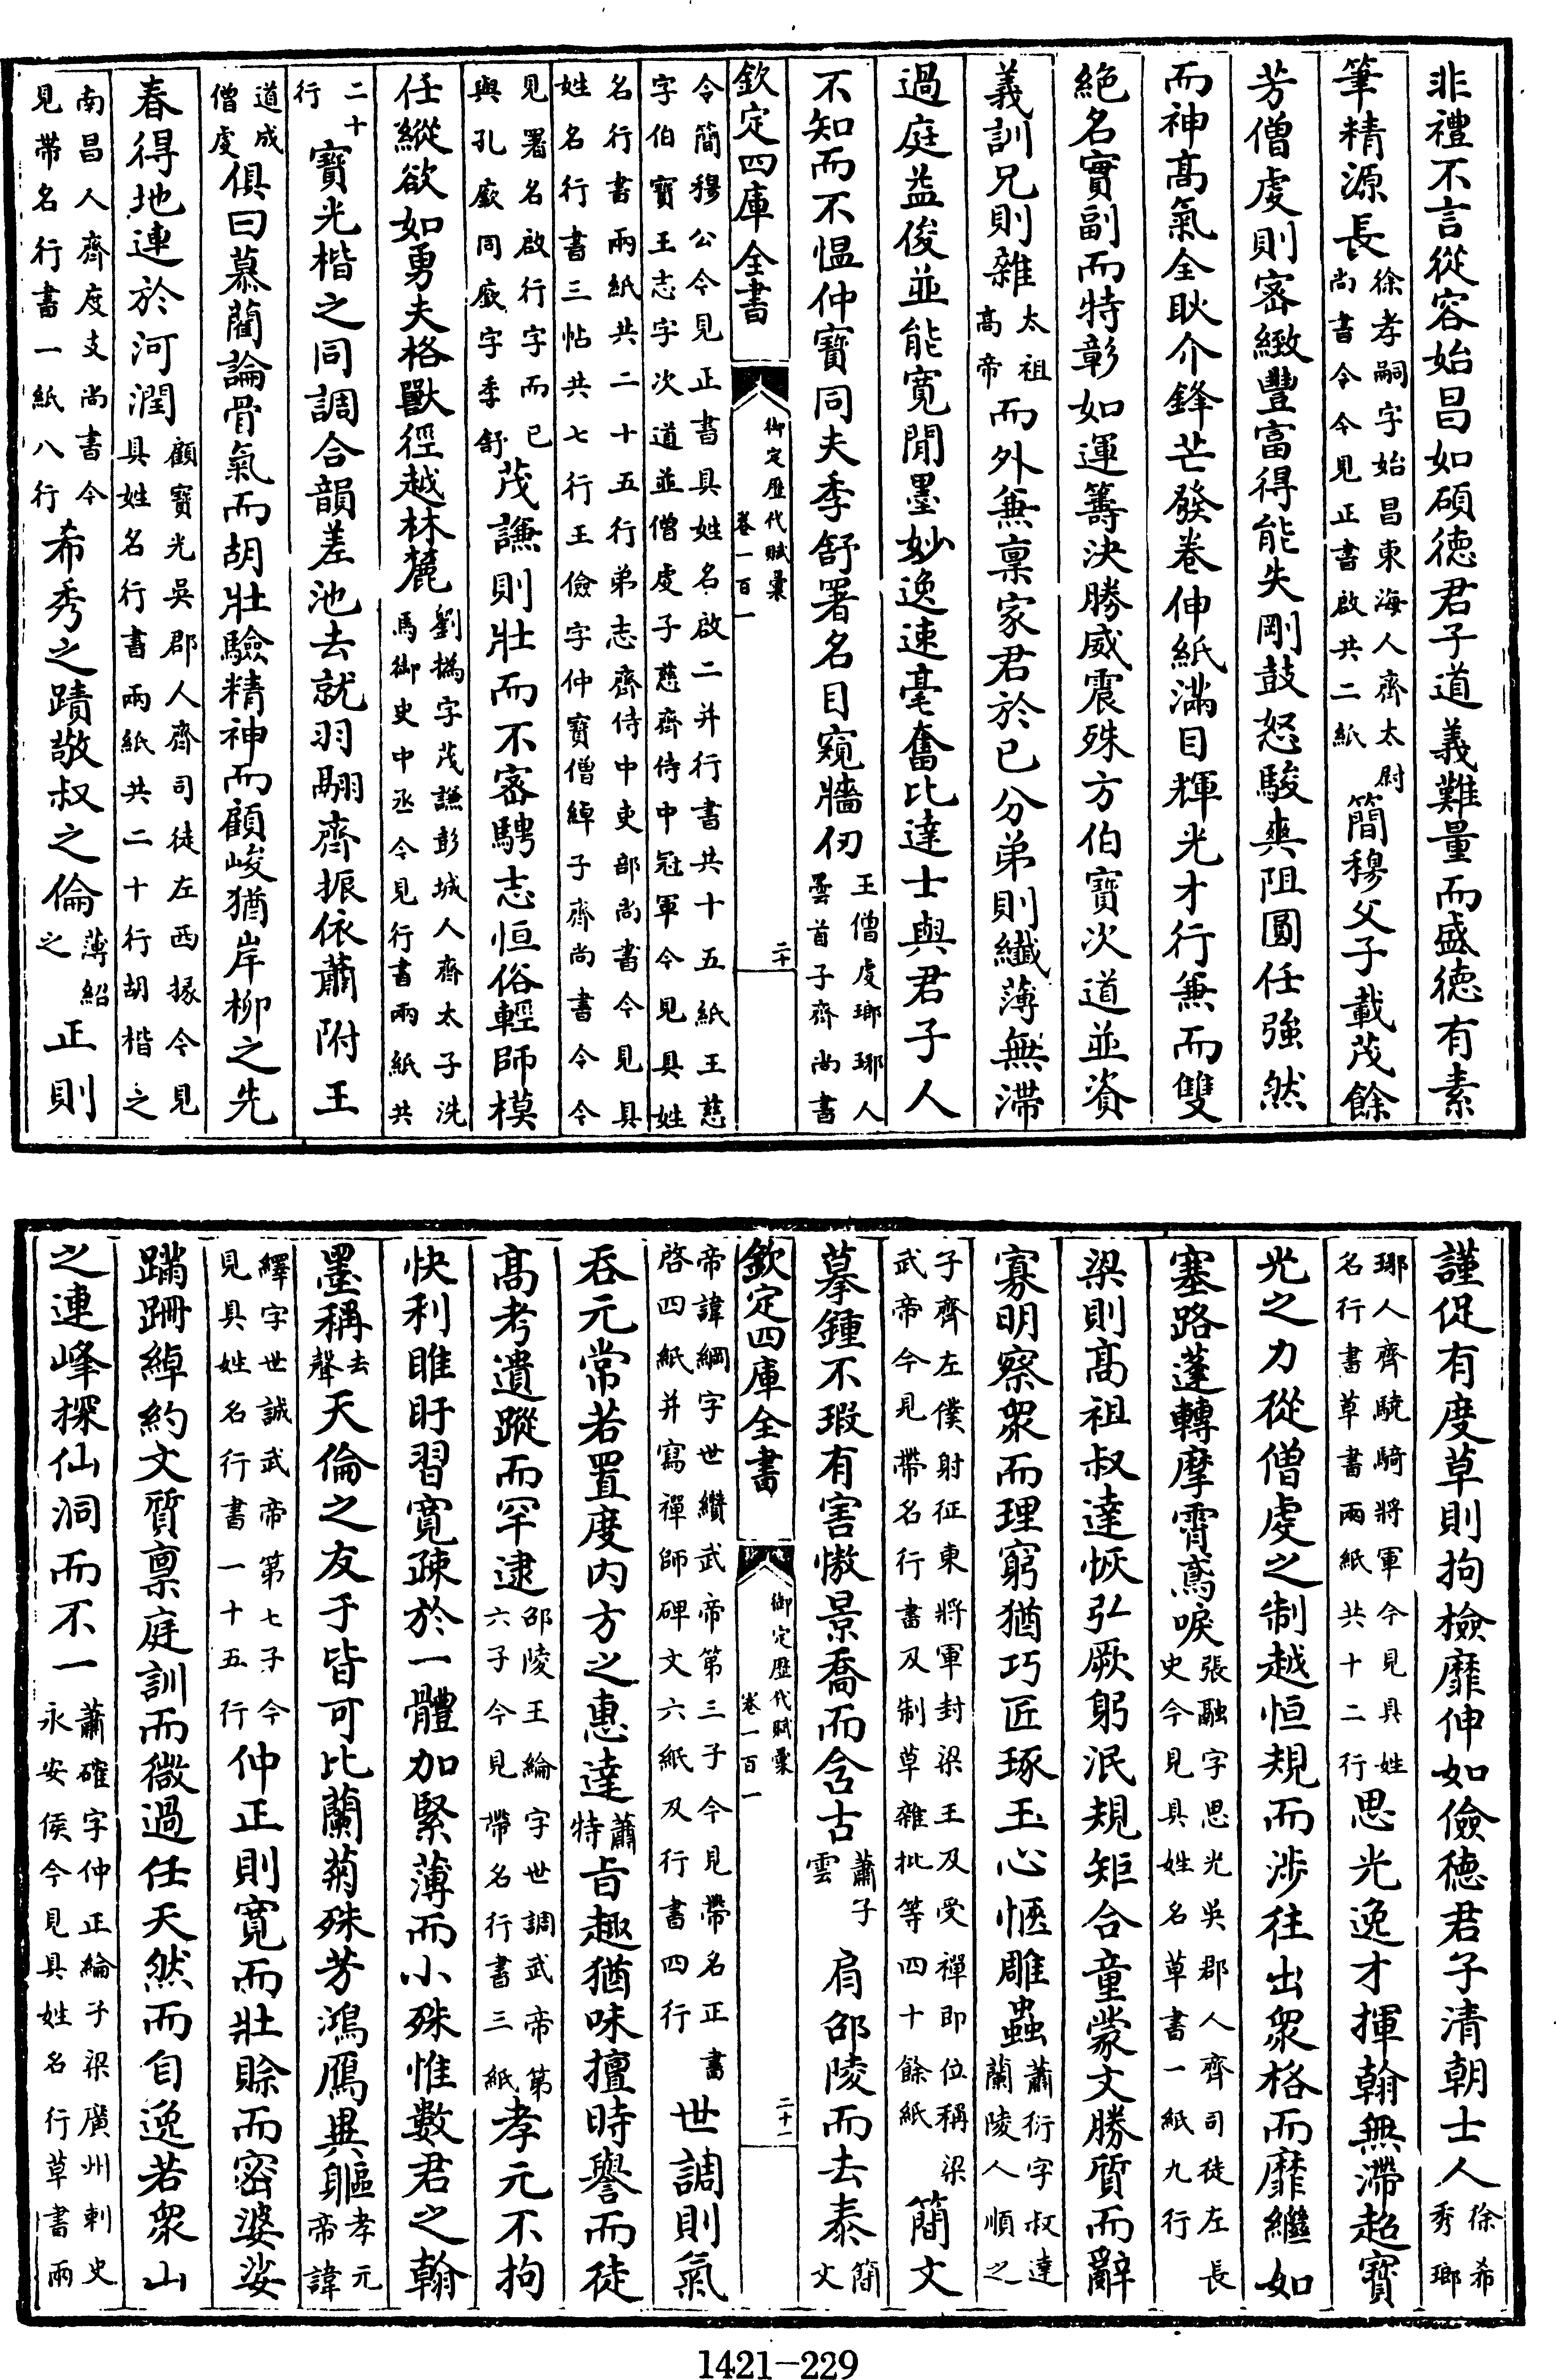 非禮不言從容始昌如碩徳君子道義難量而盛徳有素
筆精源長徐孝嗣字始昌東海人齊太尉尚書令今見正書啟共二紙簡穆父子載茂餘
芳僧䖍則密緻豐富得能失剛鼓怒駿爽阻圓任強然
而神髙氣全耿介鋒芒發卷伸紙滿目輝光才行兼而雙
絶名實副而特彰如運籌決勝威震殊方伯寶次道並資
義訓兄則雜太祖髙帝而外兼禀家君於已分弟則纎薄無滯
過庭益俊並能寛閒墨妙逸速毫奮比達士與君子人
不知而不愠仲寶同夫季舒署名目窺牆仞王僧䖍瑯琊人曇首子齊尚書
欽定四庫全書
御定歴代賦彚
卷一百一
二十
令簡穆公今見正書具姓名啟二并行書共十五紙王慈字伯寶王志字次道並僧䖍子慈齊侍中冠軍今見具姓
名行書兩紙共二十五行弟志齊侍中吏部尚書今見具姓名行書三帖共七行王儉字仲寶僧綽子齊尚書令今
見署名啟行字而已與孔廞同廞字季舒茂謙則壯而不密騁志恒俗輕師模
任縱欲如勇夫格獸徑越林麓劉撝字茂謙彭城人齊太子洗馬御史中丞今見行書兩紙共
二十行寶光楷之同調合韻差池去就羽翮齊振依蕭附王
道成僧䖍俱曰慕藺論骨氣而胡壯驗精神而顧峻猶岸柳之先
春得地連於河潤顧寶光吳郡人齊司徒左西掾今見具姓名行書兩紙共二十行胡楷之
南昌人齊度支尚書今見帶名行書一紙八行希秀之蹟敬叔之倫薄紹之正則
謹促有度草則拘檢靡伸如儉徳君子清朝士人徐希秀瑯
琊人齊驍騎將軍今見具姓名行書草書兩紙共十二行思光逸才揮翰無滯超寶
光之力從僧䖍之制越恒規而渉往出衆格而靡繼如
塞路蓬轉摩霄鳶唳張融字思光吳郡人齊司徒左長史今見具姓名草書一紙九行
梁則髙祖叔達恢弘厥躬泯規矩合童蒙文勝質而辭
寡明察衆而理窮猶巧匠琢玉心愜雕蟲蕭衍字叔達蘭陵人順之
子齊左僕射征東將軍封梁王及受禪即位稱梁武帝今見帶名行書及制草雜批等四十餘紙簡文
摹鍾不瑕有害慠景喬而含古蕭子雲肩邵陵而去泰簡文
欽定四庫全書
御定歴代賦彚
卷一百一
二十一
帝諱綱字世纘武帝第三子今見帶名正書啓四紙并寫禪師碑文六紙及行書四行世調則氣
吞元常若置度内方之惠達蕭特旨趣猶味擅時譽而徒
髙考遺蹤而罕逮邵陵王綸字世調武帝第六子今見帶名行書三紙孝元不拘
快利睢盱習寛疎於一體加緊薄而小殊惟數君之翰
墨稱去聲天倫之友于皆可比蘭菊殊芳鴻鴈異軀孝元帝諱
繹字世誠武帝第七子今見具姓名行書一十五行仲正則寛而壯賒而密婆娑
蹣跚綽約文質禀庭訓而微過任天然而自逸若衆山
之連峰探仙洞而不一蕭確字仲正綸子梁廣州刺史永安侯今見具姓名行草書兩
1421-229